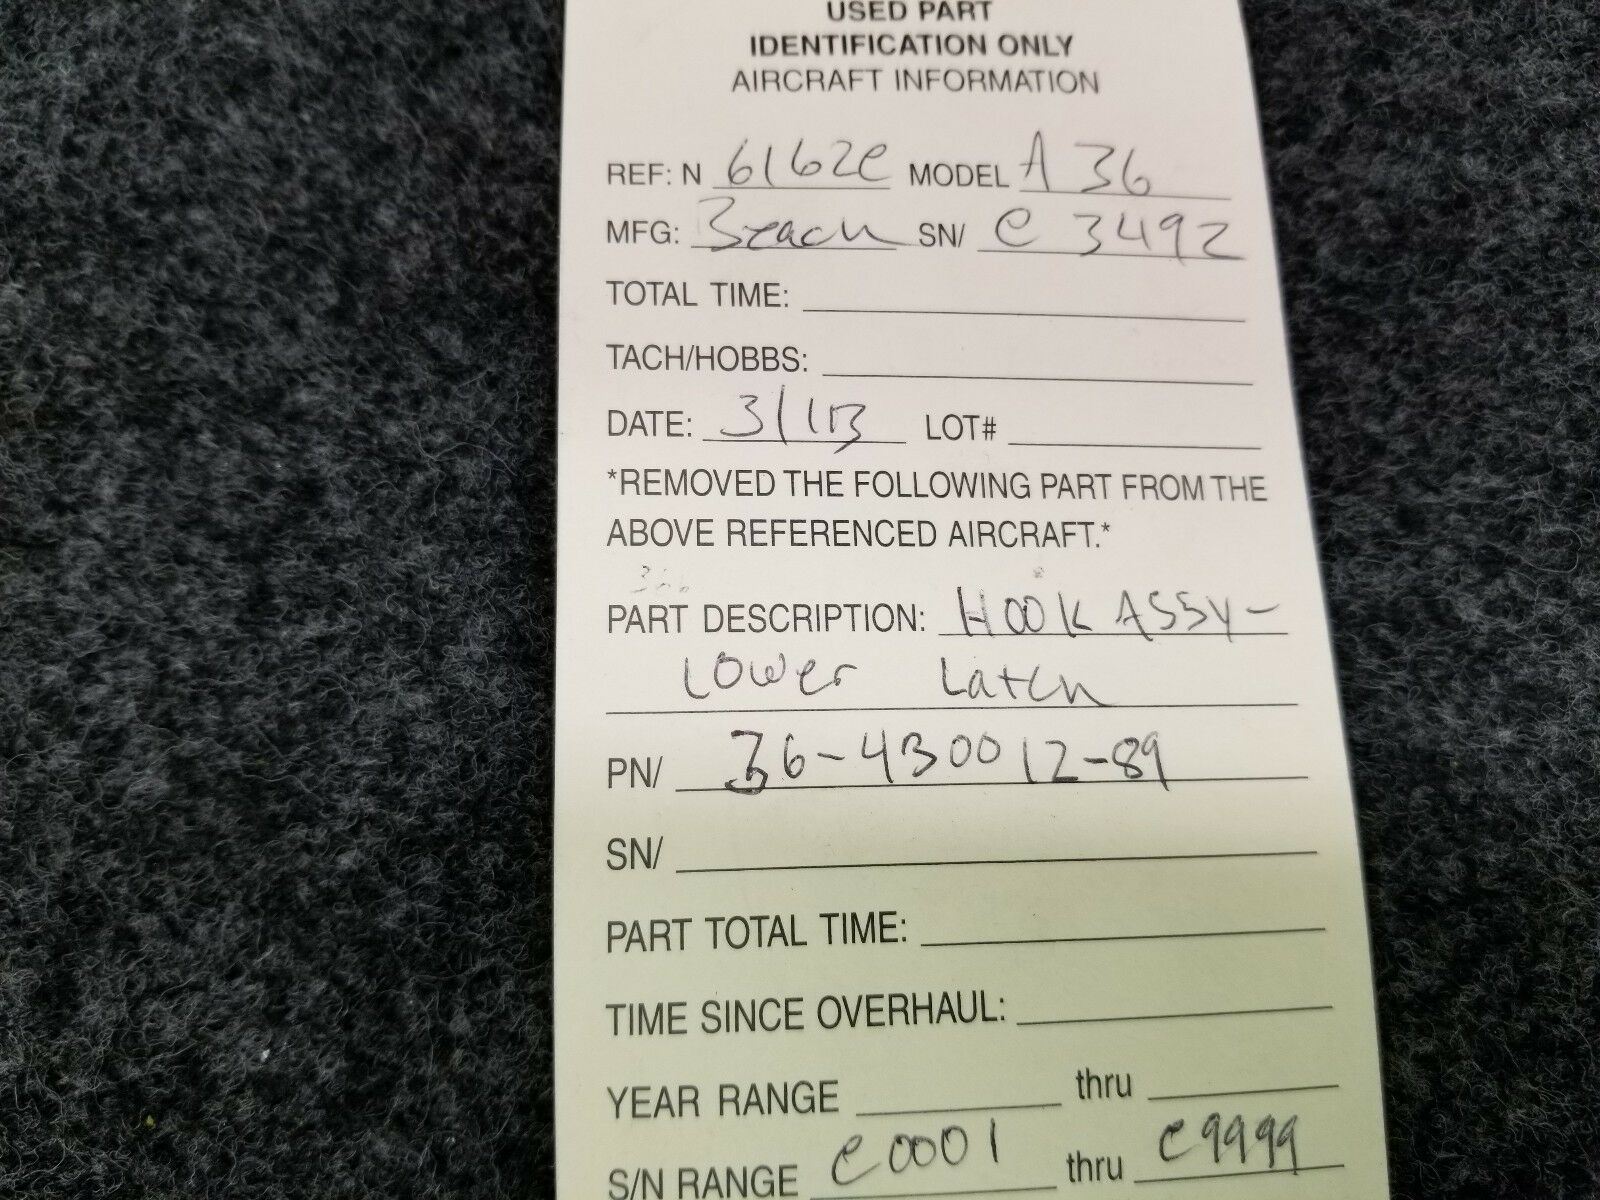 USED PART
IDENTIFICATION ONLY
AIRCRAFT INFORMATION
REF: N 6162e MODEL A 36
MFG: Beach SN/ e 3492
TOTAL TIME:
TACH/HOBBS:
DATE: 3/1/13 LOT#
*REMOVED THE FOLLOWING PART FROM THE
ABOVE REFERENCED AIRCRAFT.*
PART DESCRIPTION: HOOK ASSY-
Lower Latch
PN/ 36-430012-89
SN/
PART TOTAL TIME:
TIME SINCE OVERHAUL:
YEAR RANGE thru
S/N RANGE e0001 thru e9999